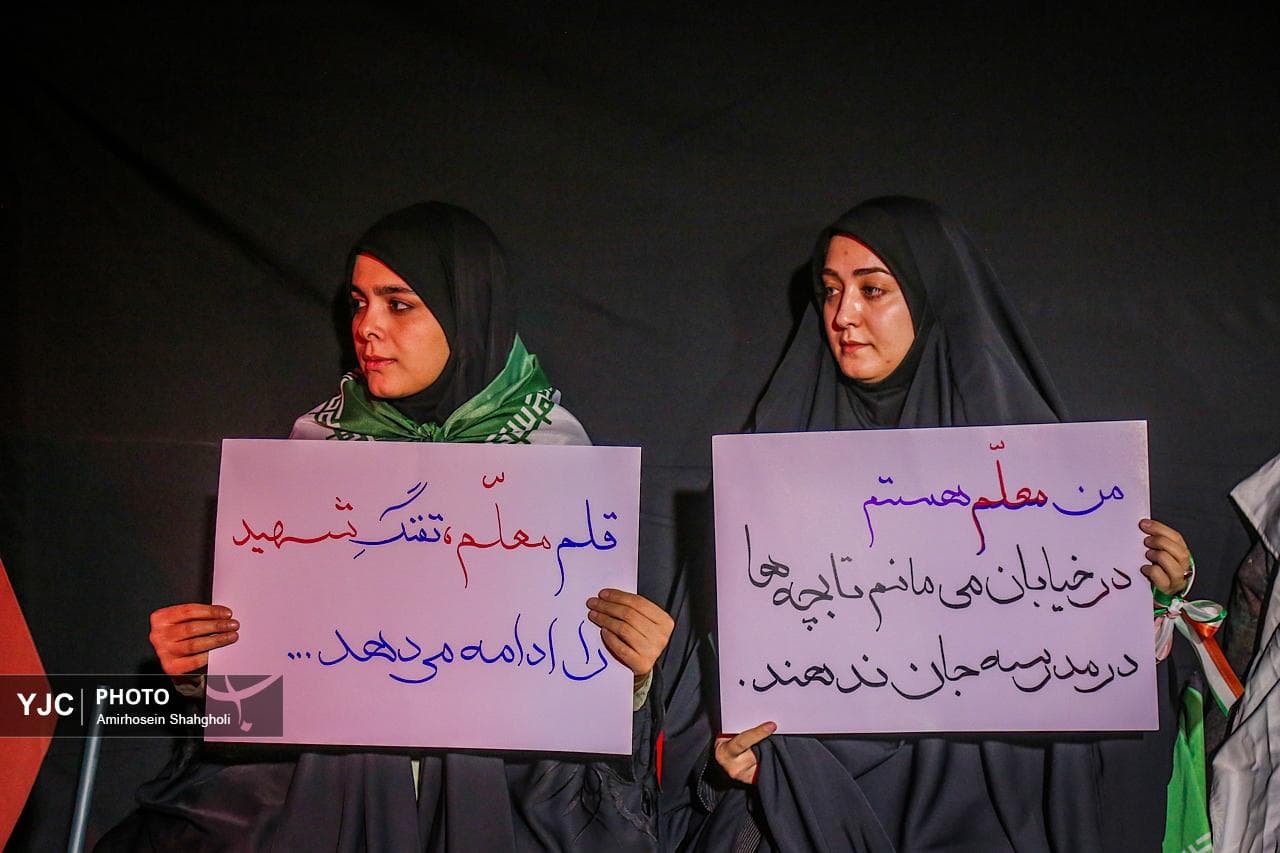 من معلّم هستم
در خیابان می مانم تا بچه ها
در مدرسه جان ندهند.
قلم معلّم، تفنگِ شهید
را ادامه می‌دهد...
YJC PHOTO
Amirhosein Shahgholi